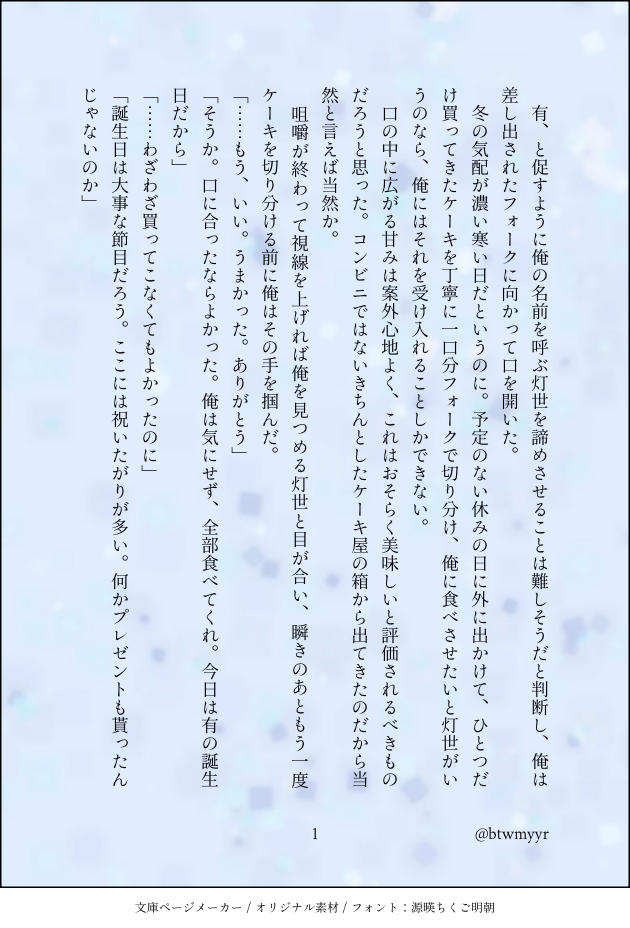 有、と促すように俺の名前を呼ぶ灯世を諦めさせることは難しそうだと判断し、俺は
差し出されたフォークに向かって口を開いた。
　冬の気配が濃い寒い日だというのに。予定のない休みの日に外に出かけて、ひとつだ
け買ってきたケーキを丁寧に一口分フォークで切り分け、俺に食べさせたいと灯世がい
うのなら、俺にはそれを受け入れることしかできない。
　口の中に広がる甘みは案外心地よく、これはおそらく美味しいと評価されるべきもの
だろうと思った。コンビニではないきちんとしたケーキ屋の箱から出てきたのだから当
然と言えば当然か。
　咀嚼が終わって視線を上げれば俺を見つめる灯世と目が合い、瞬きのあともう一度
ケーキを切り分ける前に俺はその手を掴んだ。
「……もう、いい。うまかった。ありがとう」
「そうか。口に合ったならよかった。俺は気にせず、全部食べてくれ。今日は有の誕生
日だから」
「……わざわざ買ってこなくてもよかったのに」
「誕生日は大事な節目だろう。ここには祝いたがりが多い。何かプレゼントも貰ったん
じゃないのか」
1
@btwmyyr
文庫ページメーカー / オリジナル素材 / フォント：源暎ちくご明朝